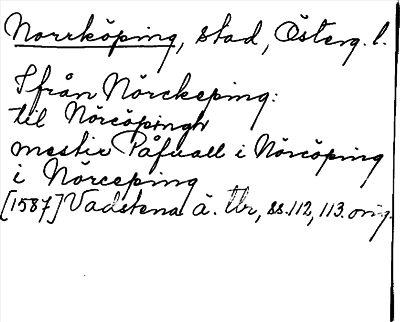 Norrköping, stad, Österg. l.
Ifrån Nörckeping:
til Nörcöpingh
mester Påfuall i Nörcöping
i Nörceping
[1587] Vadstena ä. tbr, ss. 112, 113. orig.